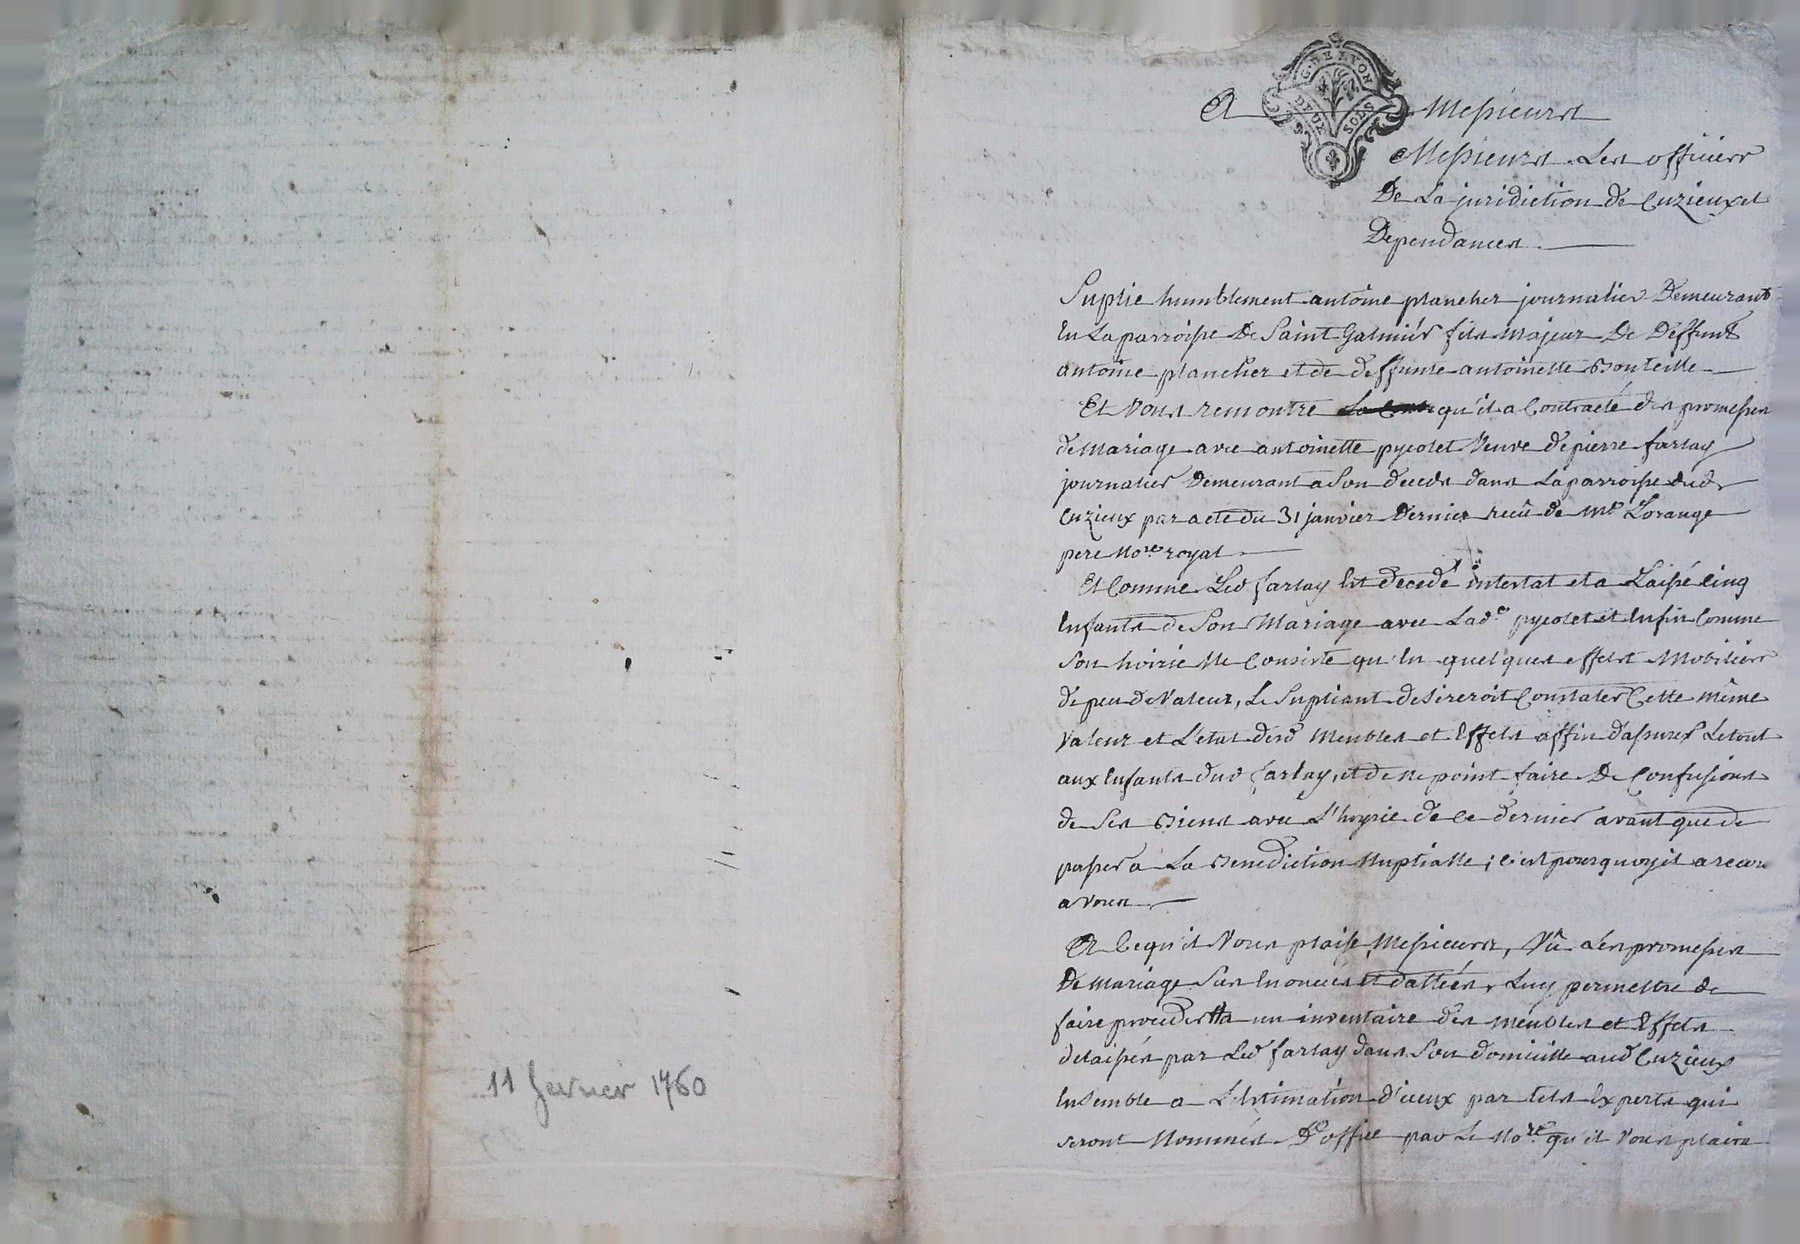 11 fevrier 1760
G. DE LYON
DEUX SOLS
A Messieurs
Messieurs Les officiers
De La juridiction de Cuzieux et
Dependances
Suplie humblement antoine plancher journalier Demeurant
En La parroisse De Saint Galmier fils majeur De Deffunt
antoine plancher et de deffunte antoinette Bouteille
Et Vous remontre qu'il a Contracté des promesses
de Mariage avec antoinette pycolet Veuve de pierre farlay
journalier Demeurant a Son deceds dans La parroisse dud.
Cuzieux par acte du 31 janvier Dernier recû de Me Lorange
pere No.re royal
Et Comme Led farlay Est decedé intestat et a Laissé Cinq
Enfants de Son Mariage avec Lad.e pycolet et Enfin Comme
Son hoirie Ne Consiste qu'En quelques effets Mobiliers
de peu de Valeur, Le Supliant desireroit Constater Cette même
Valeur et L'état desd Meubles et Effets affin d'assurer Le tout
aux Enfants dud farlay, et de ne point faire De Confusions
de Ses Biens avec L'hoyrie de Ce dernier avant que de
passer a La Benediction Nuptialle ; c'est pourquoy il a recours
a Vous
A Ce qu'il Vous plaise, Messieurs, Vû Les promesses
De Mariage Sus Enoncées et dattées, Luy permettre de
faire proceder a un inventaire des meubles et Effets
delaissés par Led farlay dans Son domicille aud Cuzieux
Ensemble a L'Estimation d'iceux par tels Experts qui
Seront Nommés D'office par Le No.re qu'il Vous plaira